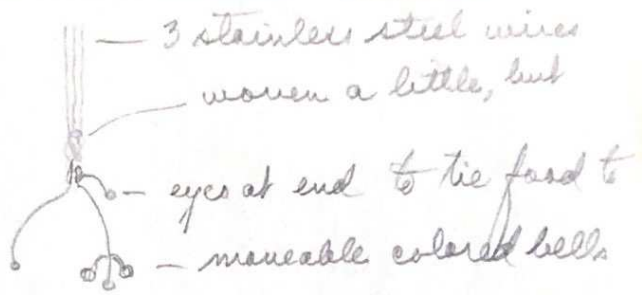 3 stainless steel wires
woven a little, but
eyes at end to tie food to
moveable colored bells